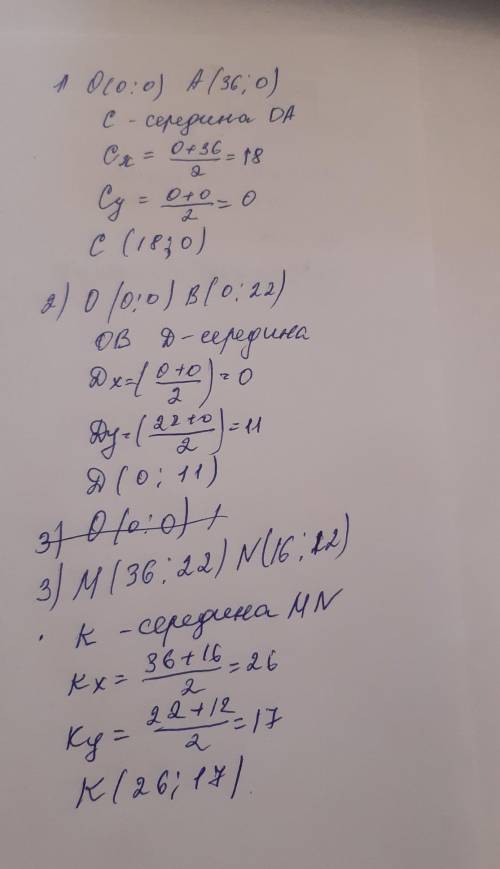 1) O(0;0) A(36;0)
C - середина OA
Cx = 0+36/2 = 18
Cy = 0+0/2 = 0
C (18;0)
2) O (0;0) B(0;22)
OB Д - середина
Дx = (0+0/2) = 0
Дy = (22+0/2) = 11
Д (0; 11)
3) O (0;0)
3) M (36;22) N(16;12)
K - середина MN
Kx = 36+16/2 = 26
Ky = 22+12/2 = 17
K (26;17)